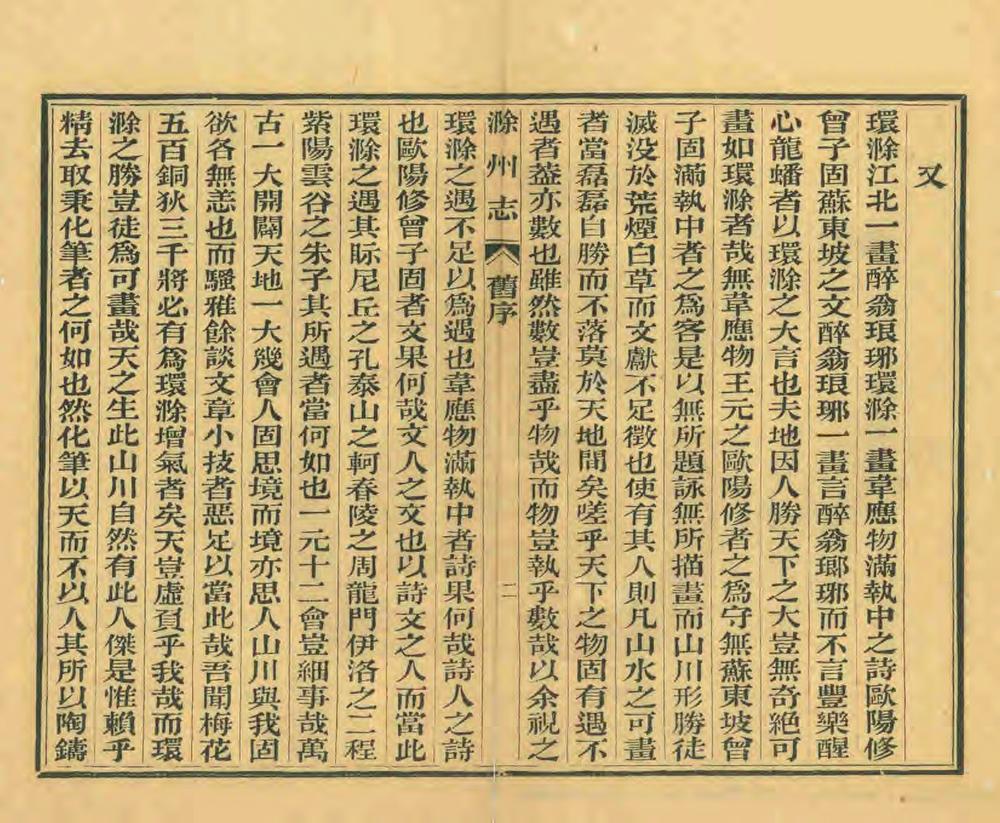 又
環滁江北一畫醉翁琅琊環滁一畫韋應物滿執中之詩歐陽修
曾子固蘇東坡之文醉翁琅琊一畫言醉翁瑯琊而不言豐樂醒
心龍蟠者以環滁之大言也夫地因人勝天下之大豈無奇絕可
畫如環滁者哉無韋應物王元之歐陽修者之爲守無蘇東坡曾
子固滿執中者之爲客是以無所題詠無所描畫而山川形勝徒
滅没於荒煙白草而文獻不足徵也使有其人則凡山水之可畫
者當磊磊自勝而不落莫於天地間矣嗟乎天下之物固有遇不
遇者葢亦數也雖然數豈盡乎物哉而物豈執乎數哉以余視之
滁州志 舊序 二
環滁之遇不足以爲遇也韋應物滿執中者詩果何哉詩人之詩
也歐陽修曾子固者文果何哉文人之文也以詩文之人而當此
環滁之遇其眎尼丘之孔泰山之軻春陵之周龍門伊洛之二程
紫陽雲谷之朱子其所遇者當何如也一元十二會豈細事哉萬
古一大開闢天地一大幾會人固思境而境亦思人山川與我固
欲各無恙也而騷雅餘談文章小技者惡足以當此哉吾聞梅花
五百銅狄三千將必有爲環滁增氣者矣天豈虛負乎我哉而環
滁之勝豈徒爲可畫哉天之生此山川自然有此人傑是惟賴乎
精去取秉化筆者之何如也然化筆以天而不以人其所以陶鑄